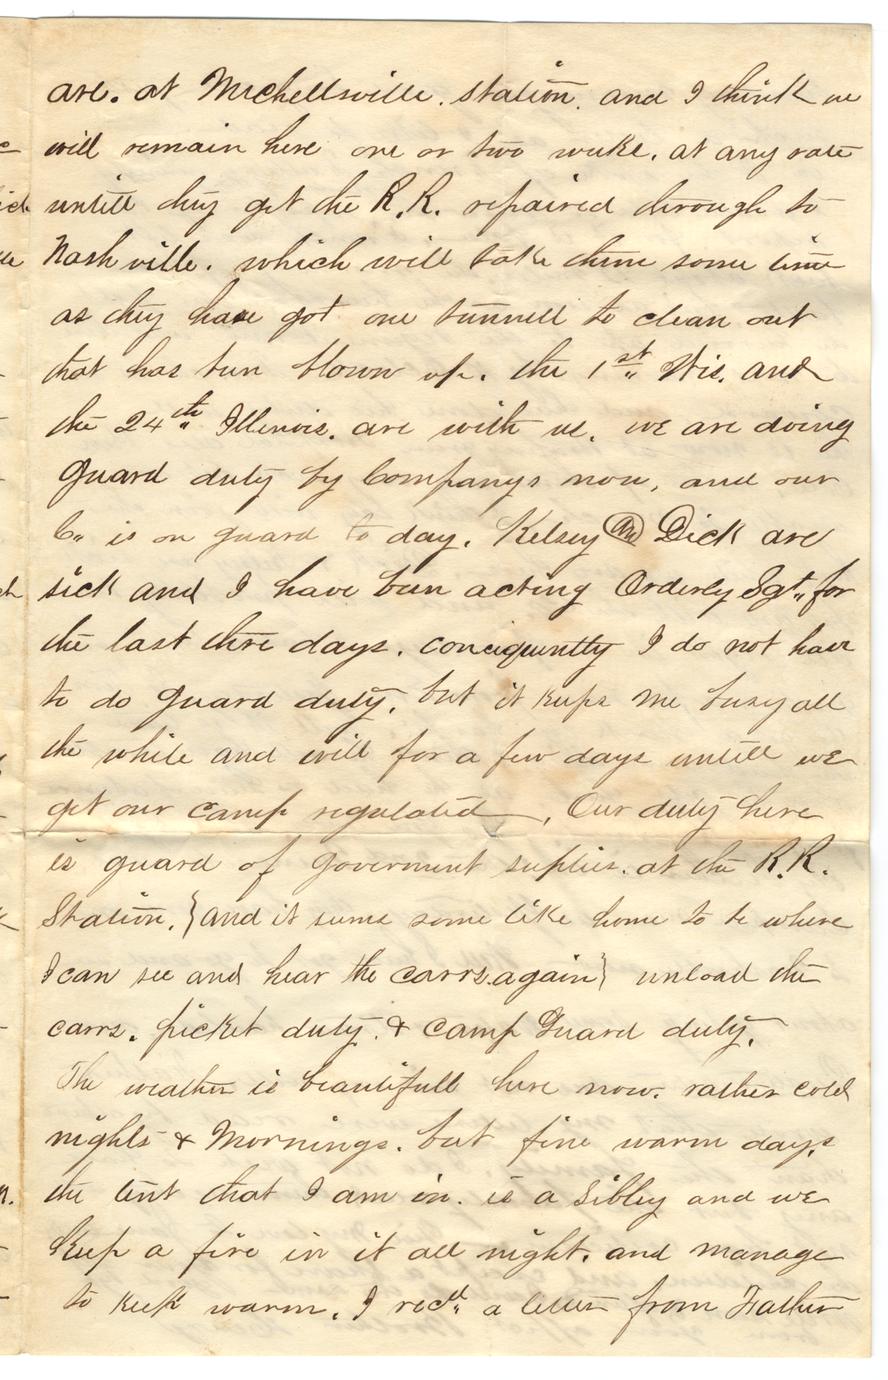 are. at Michellsville. station. and I think we
will remain here one or two weeke. at any rate
untill they get the R.R. repaired through to
Nashville. which will take them some time
as they have got one tunnell to clean out
that has bun blown up. the 1st Wis. and
the 24th Illinois. are with us. we are doing
guard duty by Companys now, and our
Co is on guard to day. Kelsey and Dick are
sick and I have been acting Orderly Sgt. for
the last thre days. conciquently I do not have
to do guard duty. but it keeps me busy all
the while and will for a few days untill we
get our camp regulated, Our duty here
is guard of goverment suplies. at the R.R.
Station. } and it seems some like home to be where
I can see and hear the carrs. again } unload the
carrs. picket duty. & camp Guard duty.
The weather is beautifull here now. rather cold
nights & Mornings. but fine warm days.
the tent that I am in. is a Sibley and we
keep a fire in it all night. and manage
to keep warm. I recd a letter from Father